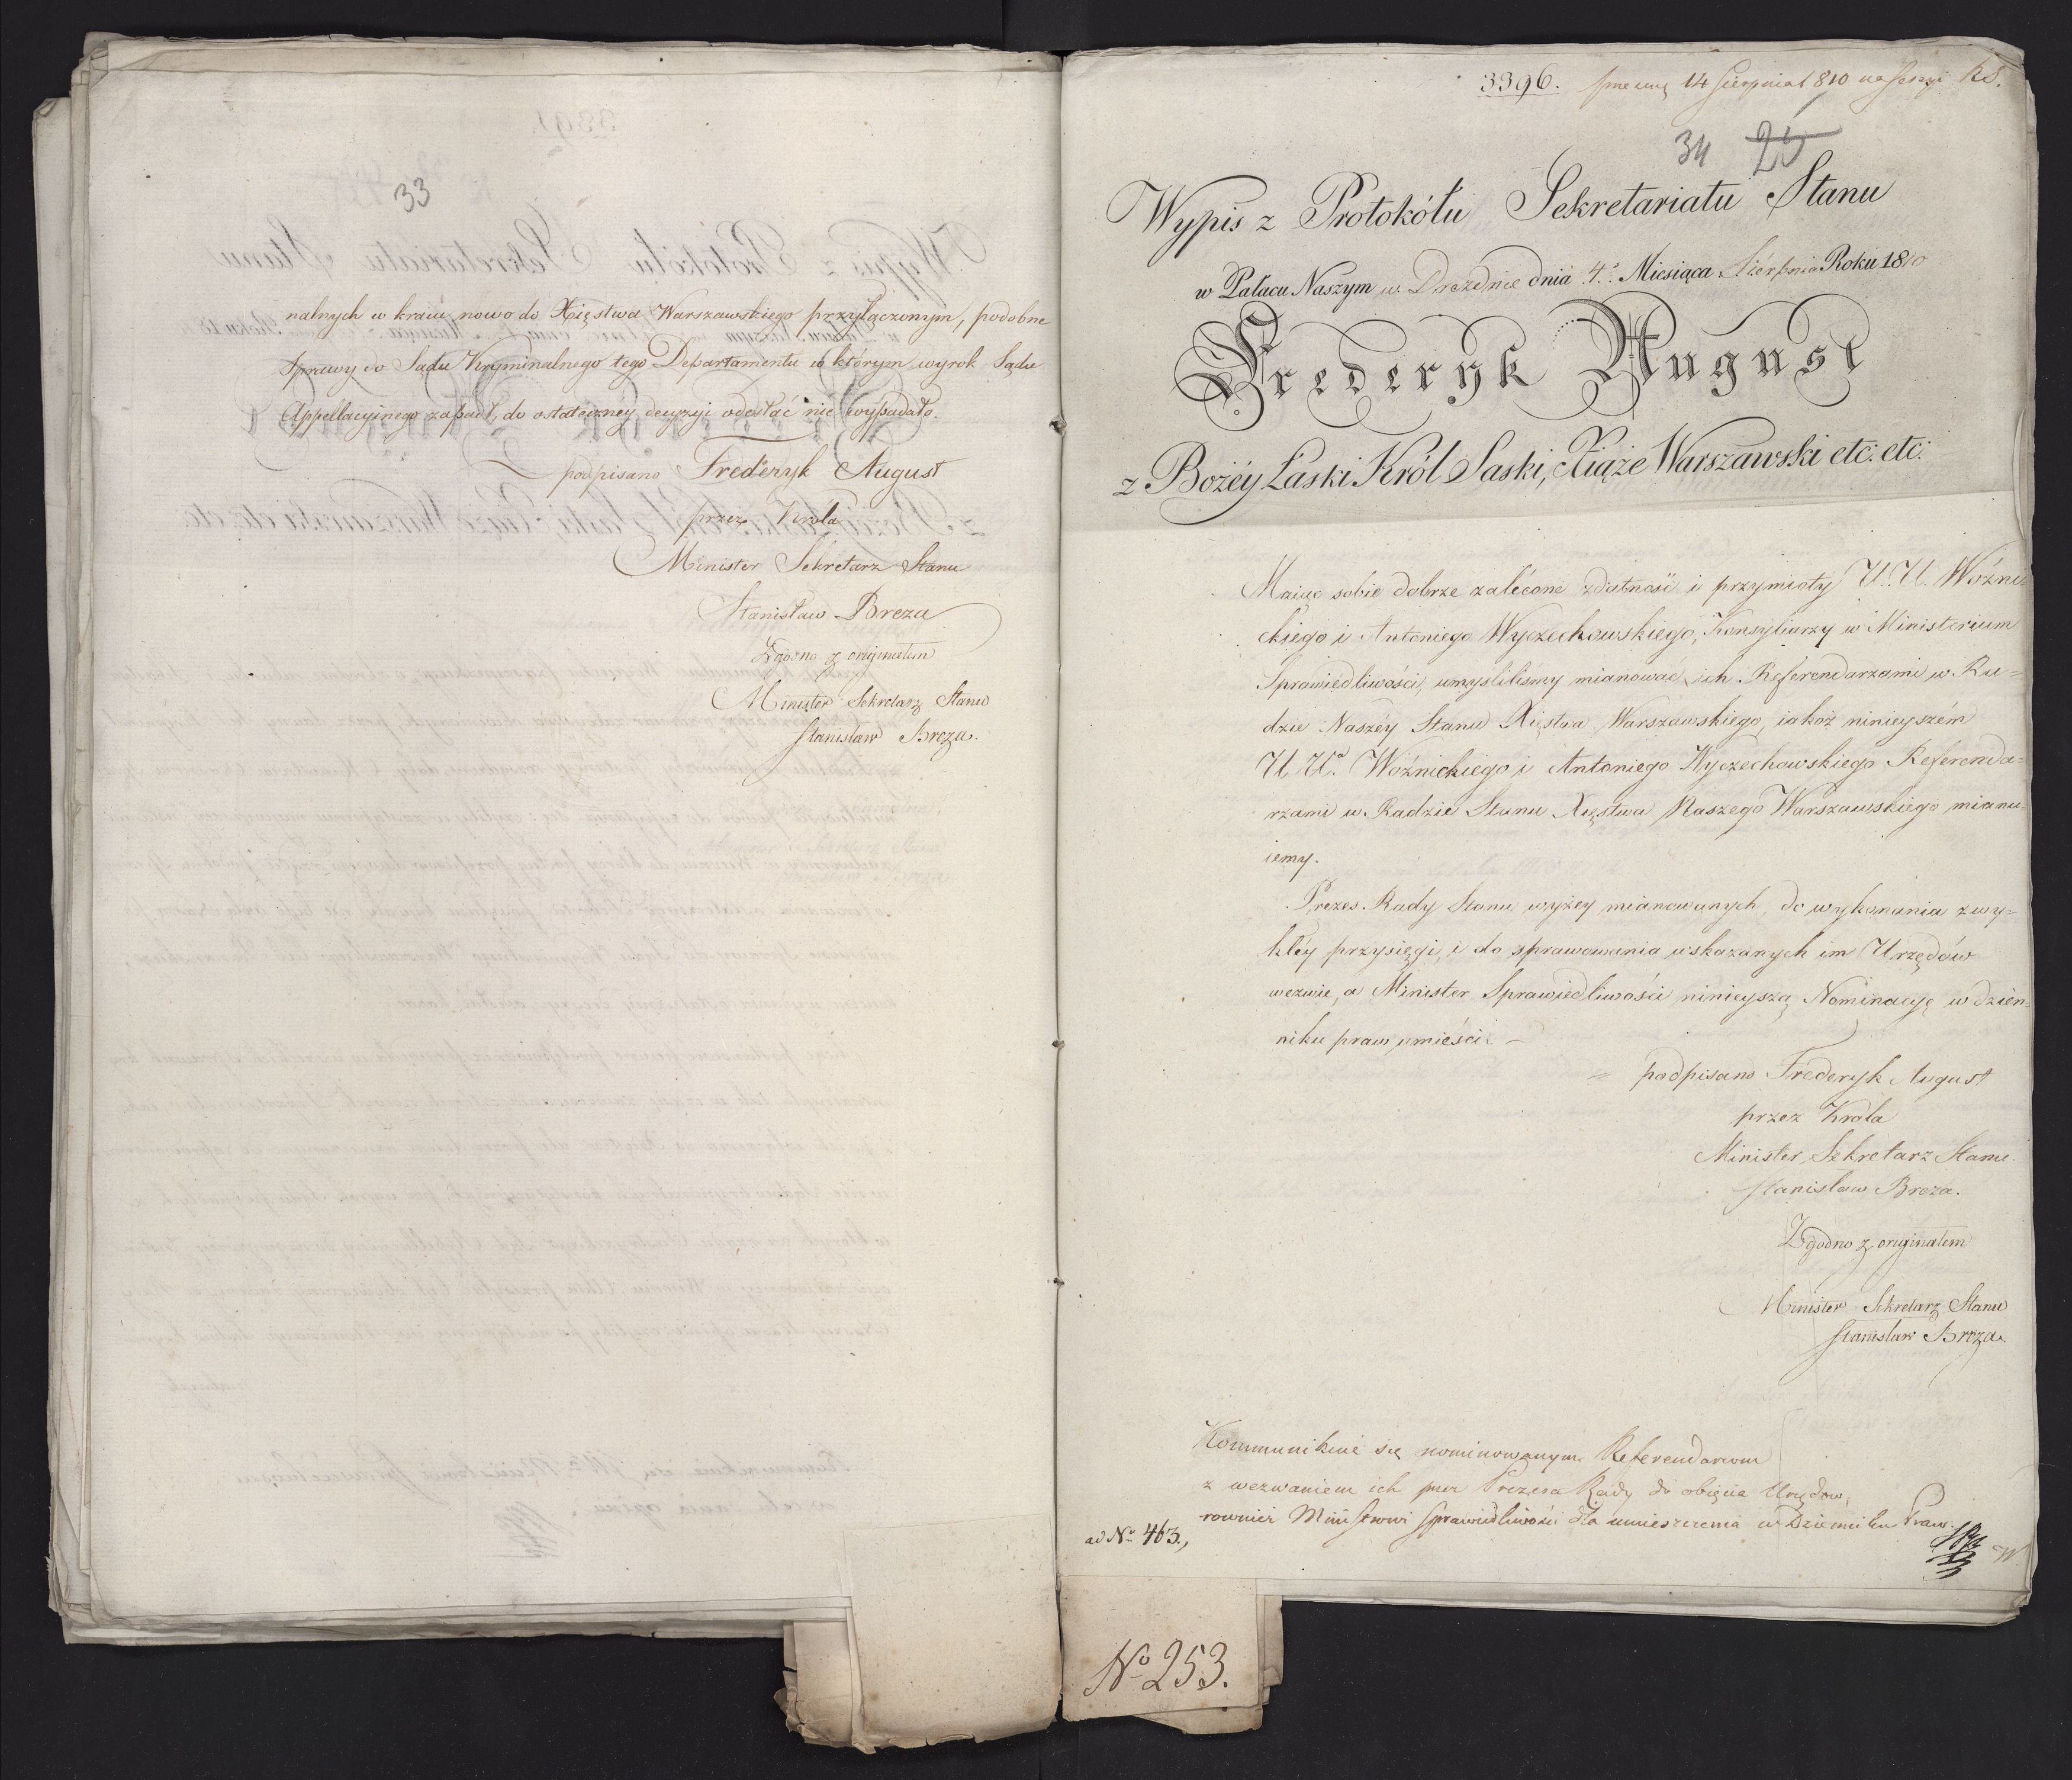 33
nalnych w kraiu nowo do Xięstwa Warszawskiego przyłączonym, podobne
Sprawy do Sądu Kryminalnego tego Departamentu w którym wyrok Sądu
Appellacyinego zapadł, do ostateczney decyzyi odesłać nie wypadało.
podpisano Frederyk August
przez Króla
Minister Sekretarz Stanu
Stanisław Breza
Zgodno z originałem
Minister Sekretarz Stanu
Stanisław Breza.
3396. 14 Sierpnia 1810 na Sessyi RS.
34 25
Wypis z Protokółu Sekretariatu Stanu
w Pałacu Naszym w Dreznie dnia 4º Miesiąca Sierpnia Roku 1810
Frederyk August
z Bożéy Łaski Król Saski, Xiąże Warszawski etc: etc:
Maiąc sobie dobrze zalécone zdatność i przymioty U.U. Woźni
ckiego i Antoniego Wyczechowskiego, Konsyliarzy w Ministerium
Sprawiedliwości, umyśliliśmy mianować ich Referendarzami w Ra=
dzie Naszéy Stanu Xięstwa Warszawskiego, iakoż ninieyszém
U U. Woźnickiego i Antoniego Wyczechowskiego Referenda=
rzami w Radzie Stanu Xięstwa Naszego Warszawskiego mianu
iemy.
Prezes Rady Stanu wyżey mianowanych, do wykonania zwy=
kłéy przysięgi, i do sprawowania wskazanych im Urzędów
wezwie, a Minister Sprawiedliwości ninieyszą Nominacyę w dzien=
niku praw umieści. –
podpisano Frederyk August
przez Króla
Minister Sekretarz Stanu
Stanisław Breza.
Zgodno z originałem
Minister Sekretarz Stanu
Stanisław Breza
Kommunikuie się nominowanym Referendarzom
z wezwaniem ich przez Prezesa Rady do obięcia Urzędów,
rownież Ministrowi Sprawiedliwości dla umieszczenia w Dzienniku Praw.
ad Nº 463.,
Nº 253.